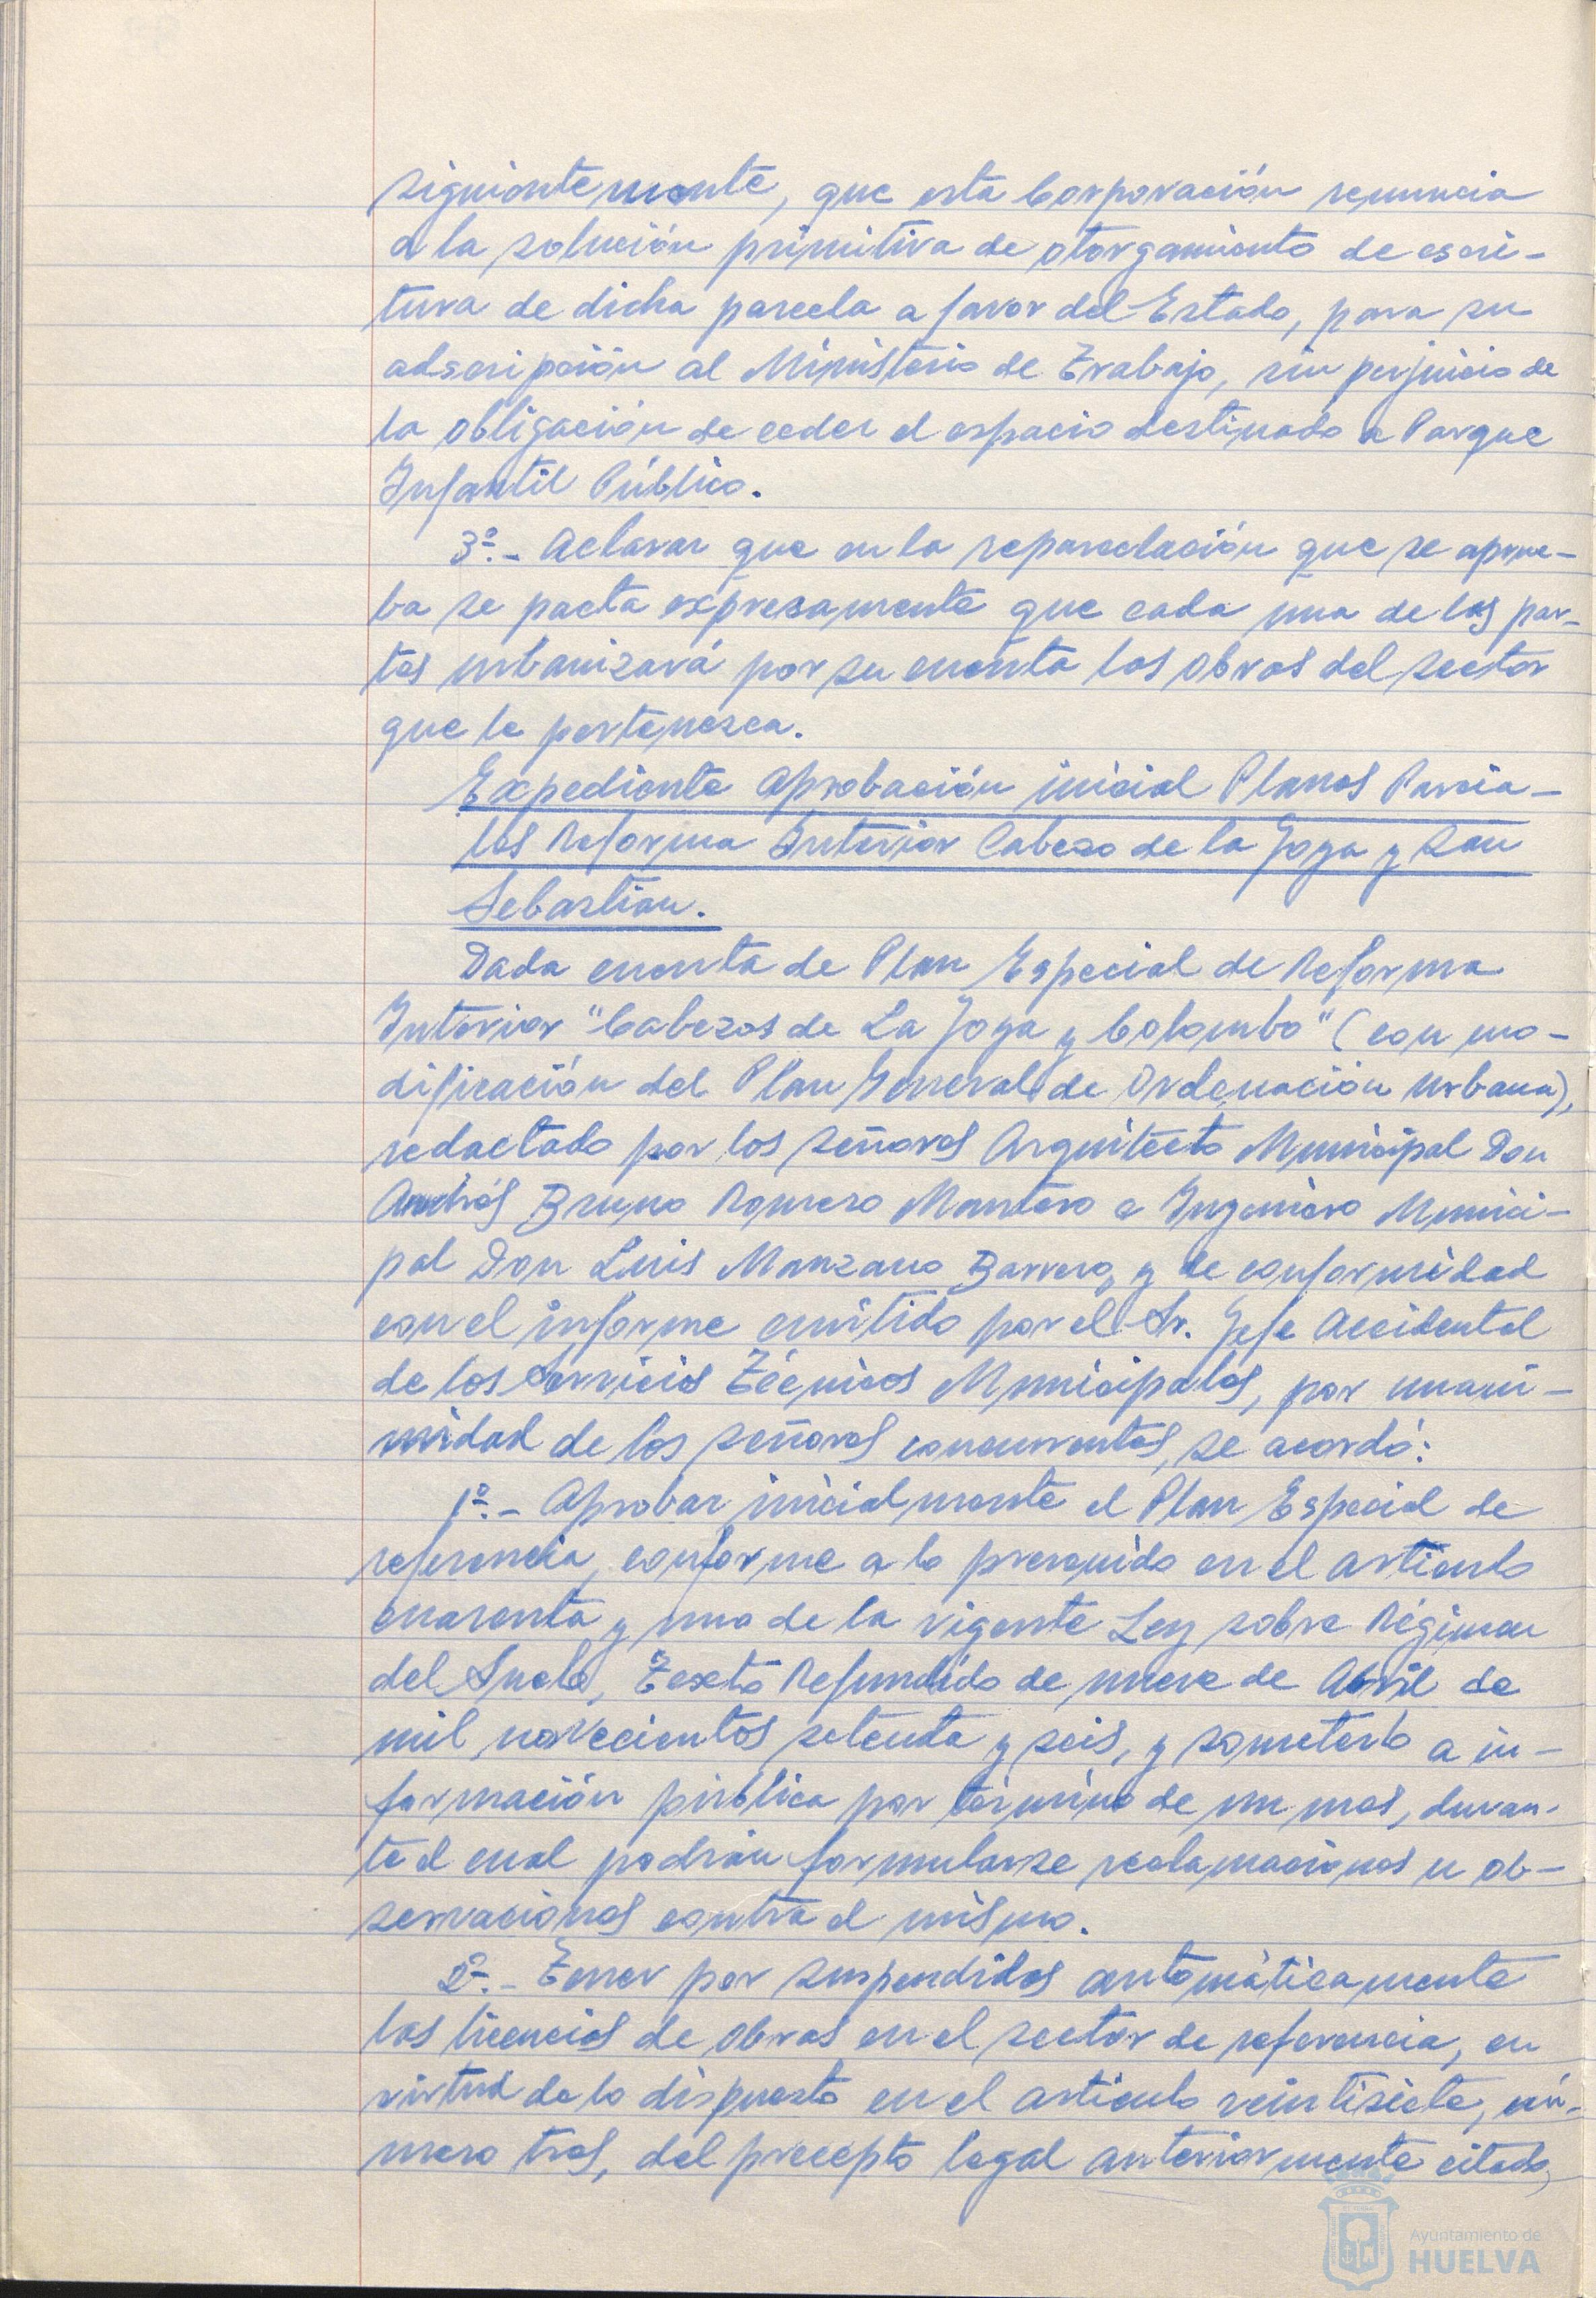 siguientemente, que esta Corporación renuncia
a la solución primitiva de otorgamiento de escri-
tura de dicha parcela a favor del Estado, para su
adscripción al Ministerio de Trabajo, sin perjuicio de
la obligación de ceder el espacio destinado a Parque
Infantil Público.
3º.- Aclarar que en la reparcelación que se aprue-
ba se pacta expresamente que cada una de las par-
tes urbanizará por su cuenta las obras del sector
que le pertenezca.
Expediente aprobación inicial Planes Parcia-
les Reforma Interior Cabezo de la Joya y San
Sebastián.
Dada cuenta de Plan Especial de Reforma
Interior "Cabezos de La Joya y Colombo" (con mo-
dificación del Plan General de Ordenación Urbana),
redactado por los señores Arquitecto Municipal Don
Andrés Bruno Romero Mantero e Ingeniero Munici-
pal Don Luis Manzano Barrero, y de conformidad
con el informe emitido por el Sr. Jefe Accidental
de los Servicios Técnicos Municipales, por unani-
midad de los señores concurrentes, se acordó:
1º.- Aprobar inicialmente el Plan Especial de
referencia, conforme a lo prevenido en el artículo
cuarenta y uno de la vigente Ley sobre Régimen
del Suelo, Texto Refundido de nueve de Abril de
mil novecientos setenta y seis, y someterlo a in-
formación pública por término de un mes, duran-
te el cual podrán formularse reclamaciones u ob-
servaciones contra el mismo.
2º.- Tener por suspendidas automáticamente
las licencias de obras en el sector de referencia, en
virtud de lo dispuesto en el artículo veintisiete, nú-
mero tres, del precepto legal anteriormente citado,
Ayuntamiento de
HUELVA